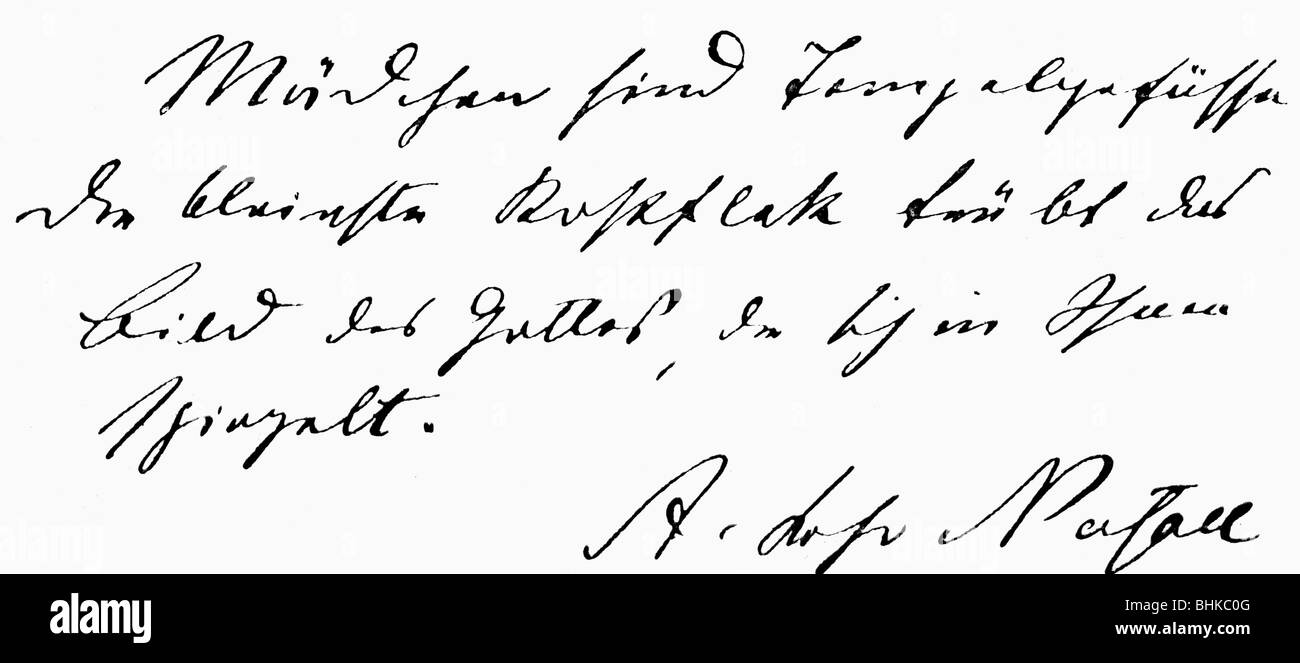 Mädchen sind Tempelgefässe
der kleinste Rostfleck trübt das
Bild des Gottes, der sich in Ihnen
spiegelt.
A.
alamy
Image ID: BHKC0G
www.alamy.com